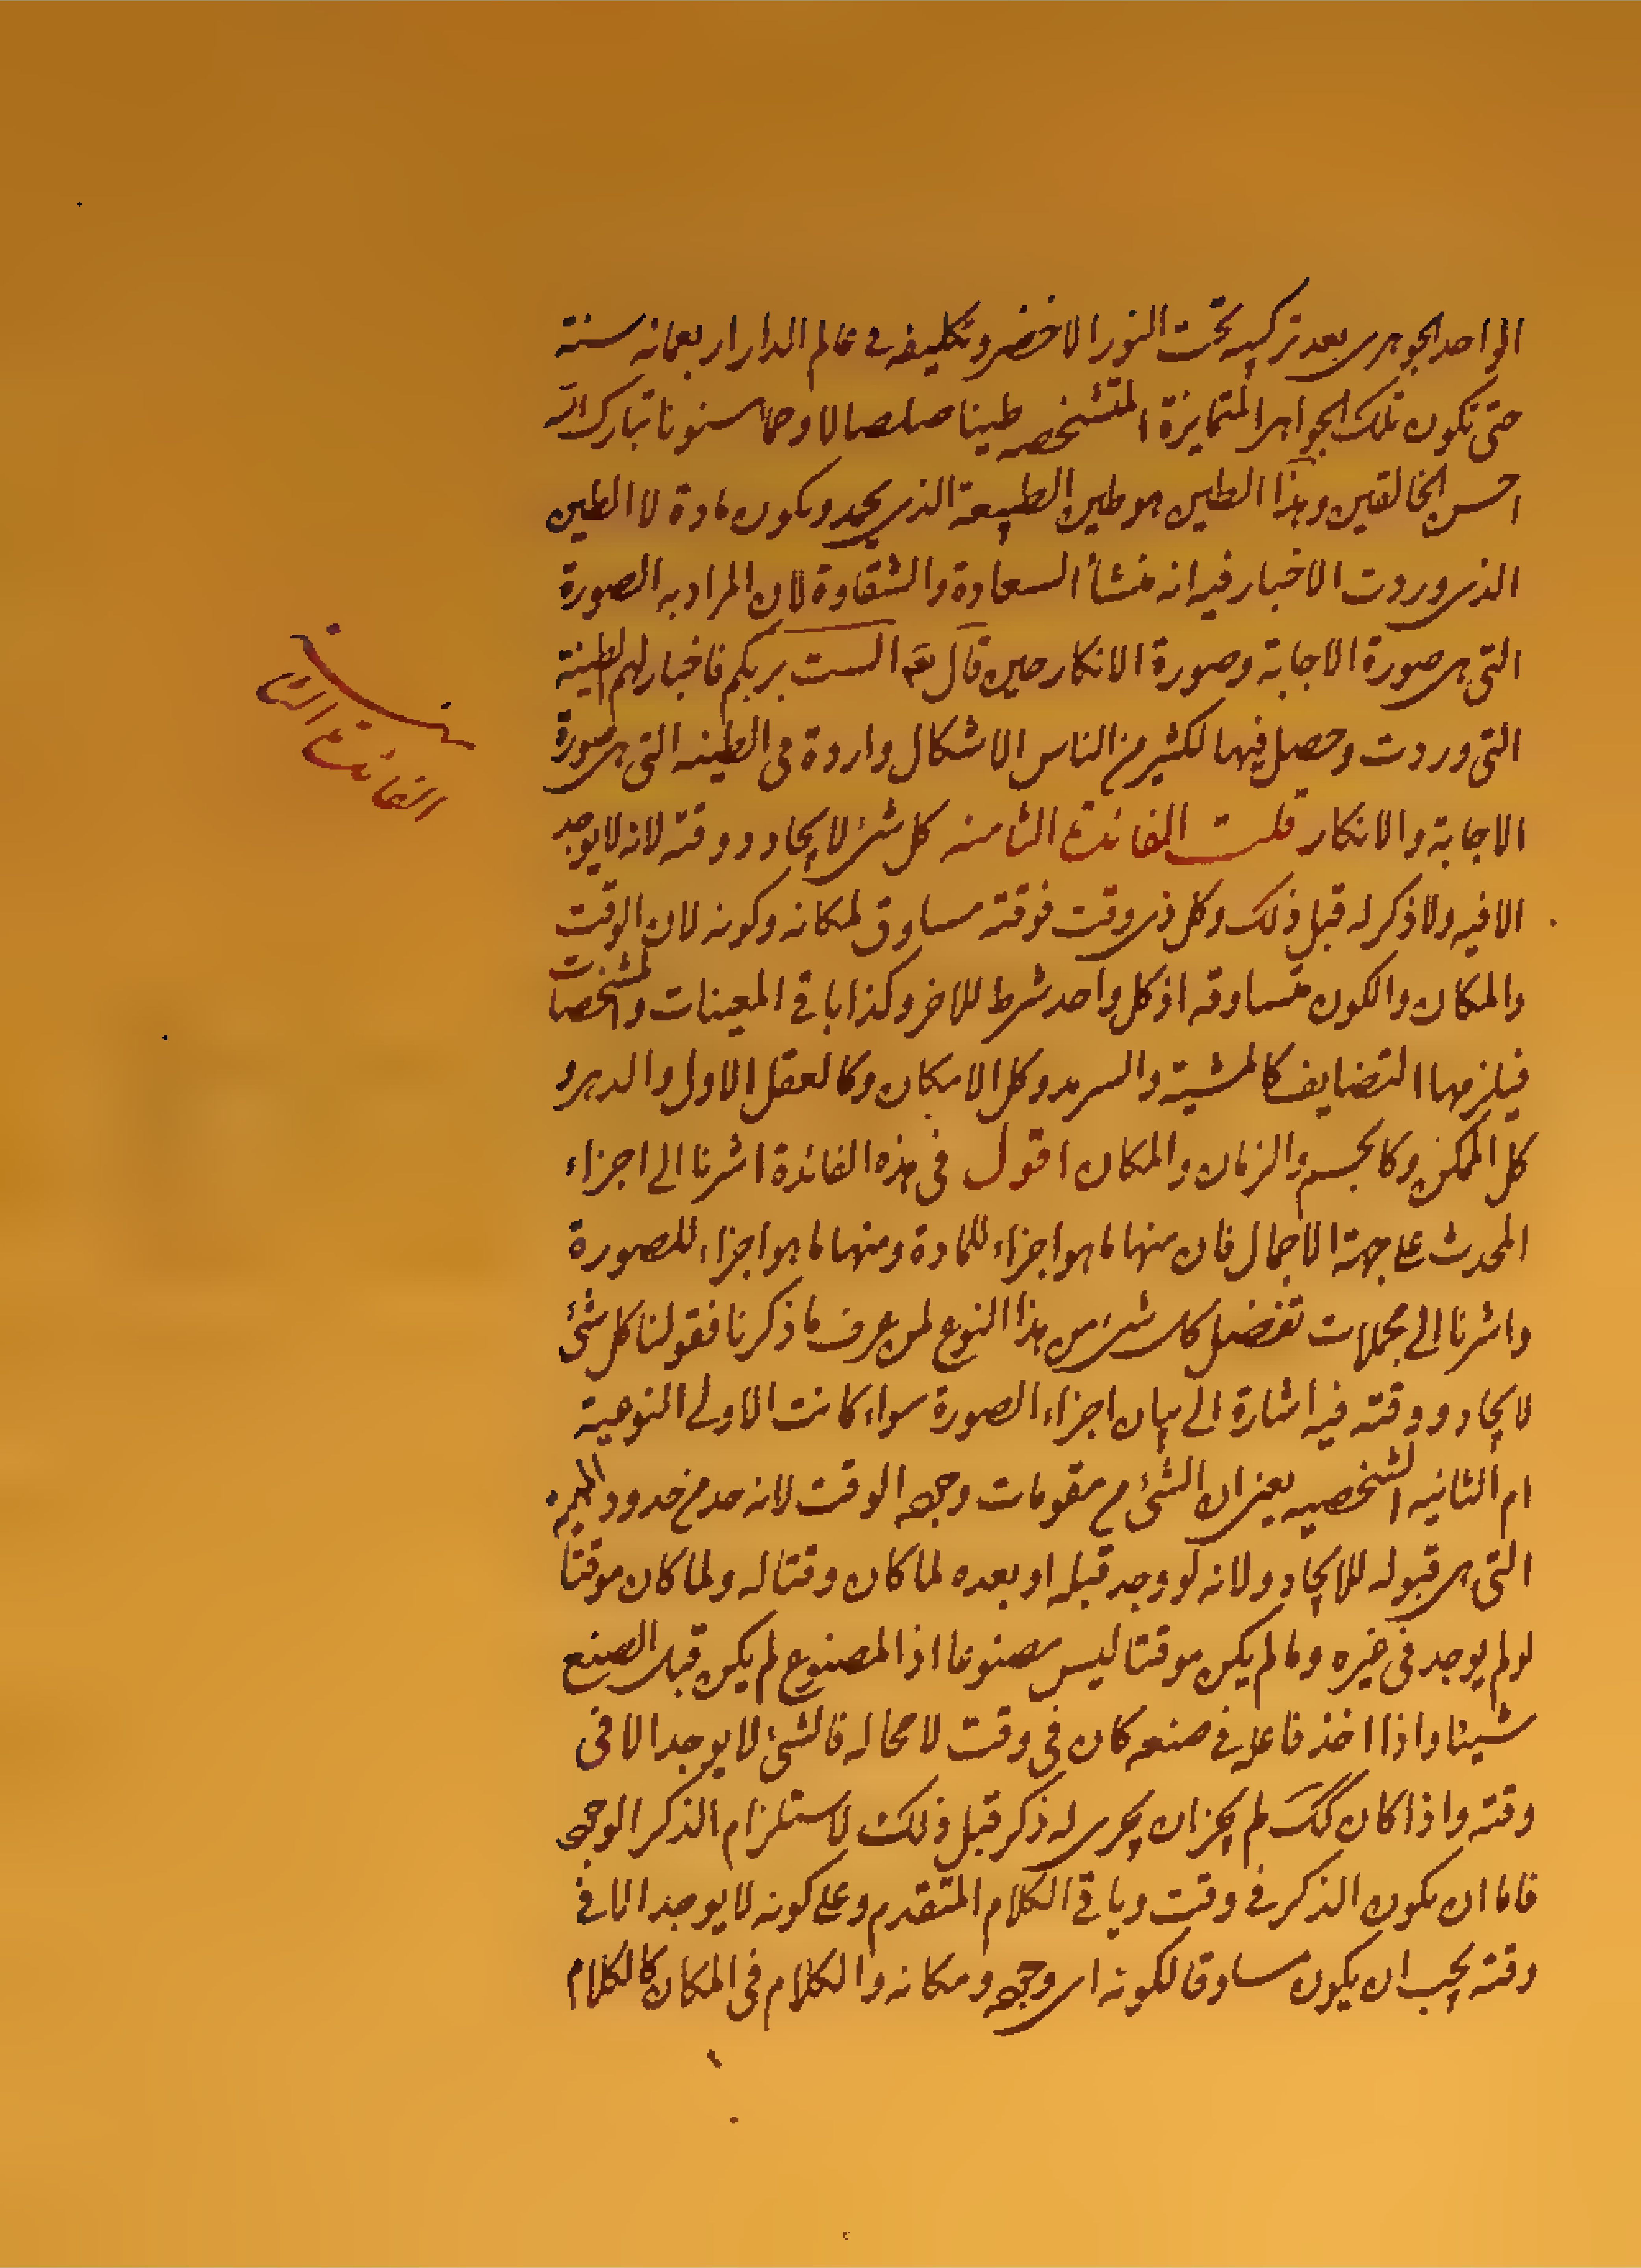 الواحد الجوهرى بعد تركيبه تحت النور الاخضر وتكليفه فى عالم الدار اربعمائه سنة
حتى تكون تلك الجواهر المتمايزة المتشخصه طينا صلصالا وحمأ مسنونا تبارك الله
احسن الخالقين وهذا الطين هو طين الطبيعة الذى يجمد ويكون مادة لا الطين
الذى وردت الاخبار فيه انه منشأ السعادة والشقاوة لان المراد به الصورة
التى هى صورة الاجابة وصورة الانكار حين قال تعه الست بربكم فاخبارهم لطينة
التى وردت وحصل فيها لكثير من الناس الاشكال واردة فى الطينه التى هى صورة
الاجابة والانكار قلت الفائدة الثامنه كل شئ لايجاد ووقته لانه لا يوجد
الا فيه ولا ذكر له قبل ذلك وكل ذى وقت فوقته مساوق لمكانه وكونه لان الوقت
والمكان والكون متساوقه اذ كل واحد شرط للاخر وكذا باقى المعينات والمشخصات
فيلزمها التضايف كالمشية والسرمد وكل الامكان وكالعقل الاول والدهر و
كل الممكن وكالجسم والزمان والمكان اقول فى هذه الفائدة اشرنا الى اجزاء
المحدث على جهة الاجمال فان منها ما هو اجزاء للمادة ومنها ما هو اجزاء للصورة
واشرنا الى مجملات تفضل كل شئ من هذا النوع لمن عرف ما ذكرنا فقولنا كل شئ
لايجاد ووقته فيه اشارة الى بيان اجزاء الصورة سواء كانت الاولى النوعية
ام الثانيه الشخصيه يعنى ان الشئ من مقومات وجوده الوقت لانه حد من حدود
التى هى قبوله للايجاد ولانه لو وجد قبله او بعده لما كان وقتا له ولما كان موقتا
لو لم يوجد فى غيره وما لم يكن موقتا ليس مصنوعا اذ المصنوع لم يكن قبل الصنع
شيئا واذا اخذ فاعله فى صنعه كان فى وقت لا محاله فالشئ لا يوجد الا فى
وقته واذا كان كك لم يجز ان يجرى له ذكر قبل ذلك لاستلزام الذكر الوجود
فاما ان يكون الذكر فى وقت وياقى الكلام المتقدم وعلى كونه لا يوجد الا فى
وقته يجب ان يكون مساوقا لكونه اى وجوده ومكانه والكلام فى المكان كالكلام
الفائدة الثامنه